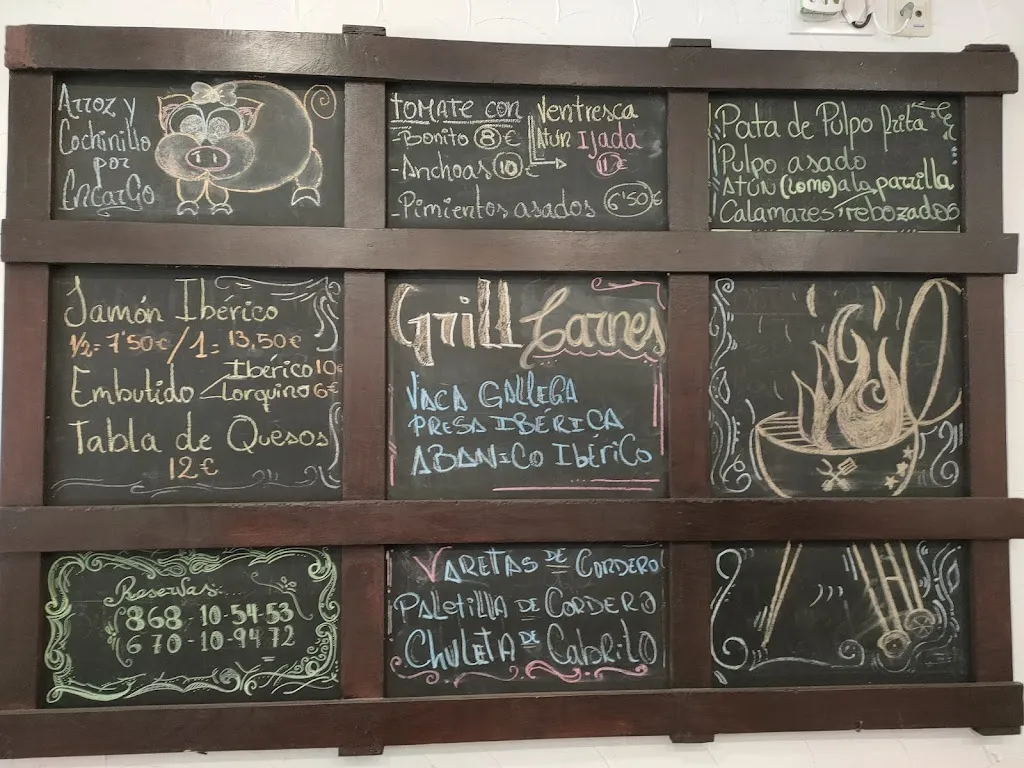 Arroz y
Cochinillo
por
Encargo
TOMATE CON
-Bonito 8€
-Anchoas 10€
Ventresca
Atún Ijada
-Pimientos asados 6'50€
Pata de Pulpo frita
Pulpo asado
ATÚN (lomo) a la parrilla
Calamares rebozados
Jamón Ibérico
1/2= 7'50€ / 1= 13,50€
Embutido
Ibérico 10€
Lorquino 6€
Tabla de Quesos
12€
Grill Carnes
VACA GALLEGA
PRESA IBÉRICA
ABANICO IBÉRICO
Reservas...
868-10-54-53
670-10-94 72
VARETAS DE CORDERO
PALETILLA DE CORDERO
CHULETA DE Cabrito